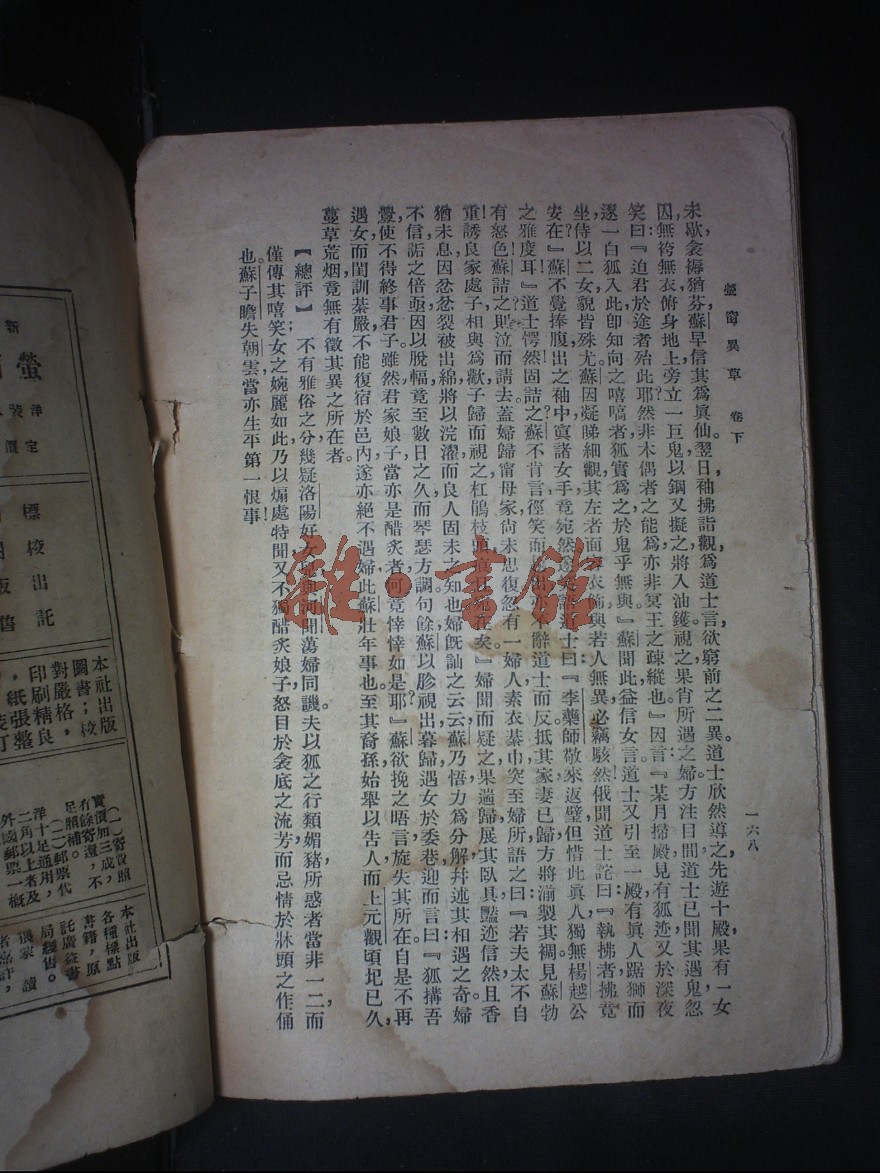 螢窗異草 卷下
一六八
未歇,衾褥猶芬,蘇早信其爲眞仙。翌日,袖拂詣觀,爲道士言,欲窮前之二異。道士欣然導之,先遊十殿,果有一女
囚,無袴無衣,俯身地上,旁立一巨鬼,以鋼叉擬之,將入油鑊。視之果肖所遇之婦,方注目間,道士已聞其遇鬼,忽
笑曰:『迫君於途者,殆此耶?然非木偶者之能爲,亦非冥王之疎縱也。』因言:『某月掃殿,見有狐迹,又於深夜
逐一白狐入此,卽知向之嘻嗃者,狐實爲之,於鬼乎無與。』蘇聞此,益信女言。道士又引至一殿,有眞人踞獅而
坐,侍以二女,貌皆殊尤。蘇因凝睇細觀,其左者面 衣飾,與若人無異,必竊駭然。俄聞道士詫曰:『執拂者拂竟
安在?』蘇不覺捧腹,出之袖中,寘諸女手,竟宛然 笑語道士曰:『李藥師敬來返璧,但惜此眞人,獨無楊越公
之雅度耳!』道士愕然,固詰之,蘇不肯言,徑笑而 出,亦不辭道士而反。抵其家,妻已歸,方將湔製其裯,見蘇勃
有怒色。蘇詰之,則泣而請去。蓋婦歸甯母家,尙未思復,忽有一婦人,素衣綦巾,突至婦所,語之曰:『若夫太不自
重!誘良家處子,相與爲歡,子歸而視之,杜鵑枝頭,眞 宛在矣。』婦聞而疑之,果遄歸,展其臥具,豔迹信然,且香
猶未息,因忿忿裂被出綿,將以浣濯,而良人固未之知也。婦旣訕之云云,蘇乃悟,力爲分解,幷述其相遇之奇,婦
不信,詬之倍亟,因以脫幅,竟至數日之久,而琴瑟方調。句餘,蘇以胗視出,暮歸,遇女於委巷,迎而言曰:『狐搆吾
釁,使不得終事君子,雖然,君家娘子,當亦是醋炙者,何竟悻悻如是耶?』蘇欲挽之晤言,旋失其所在。自是不再
遇女,而閨訓綦嚴,不能復宿於邑內,遂亦絕不遇婦。此蘇壯年事也。至其裔孫,始舉以告人,而上元觀頃圮已久,
蔓草荒烟,竟無有徵其異之所在者。
【總評】 不有雅俗之分,幾疑洛陽好女兒,與河間蕩婦同譏。夫以狐之行類媚豬,所惑者當非一二,而
僅傳其嘻笑;女之婉麗如此,乃以煽處特聞,又不獨醋炙娘子,怒目於衾底之流芳,而忌情於牀頭之作俑
也。蘇子瞻失朝雲,當亦生平第一恨事!
新
螢
洋裝
定價
標
校
出版
託售
本社出版
圖書;校
對嚴格,
印刷精良
,紙張整
(一)寄費照
實價加三成,
有餘寄還,不
足照補。
(二)郵票代
洋十足通用,
二角以上者及
外國郵票一概
本社出版
各種標點
書籍,原
託廣益書
局經售。